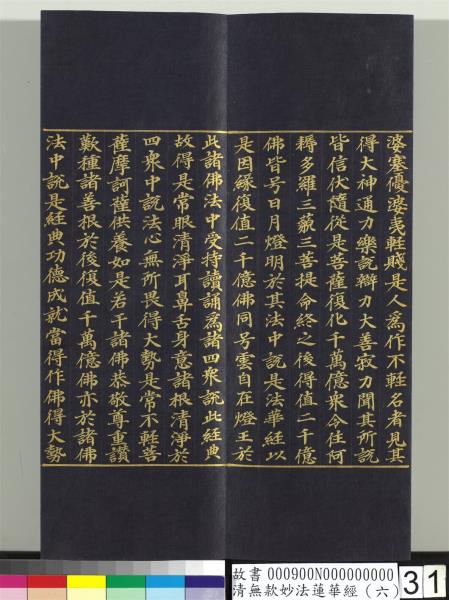 婆塞優婆夷輕賤是人為作不輕名者見其
得大神通力樂說辯力大善寂力聞其所說
皆信伏隨從是菩薩復化千萬億眾令住阿
耨多羅三藐三菩提命終之後得值二千億
佛皆号日月燈明於其法中說是法華經以
是因緣復值二千億佛同号雲自在燈王於
此諸佛法中受持讀誦為諸四眾說此經典
故得是常眼清淨耳鼻舌身意諸根清淨於
四眾中說法心無所畏得大勢是常不輕菩
薩摩訶薩供養如是若干諸佛恭敬尊重讚
歎種諸善根於後復值千萬億佛亦於諸佛
法中說是經典功德成就當得作佛得大勢
故書 000900N000000000
清無款妙法蓮華經（六）
31